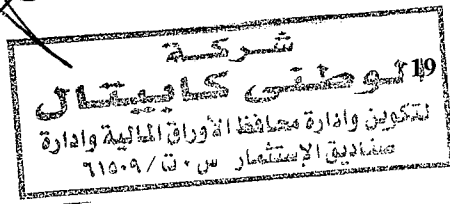 شركة
الوطنى كابيتال 19
لتكوين وادارة محافظ الأوراق المالية وادارة
صناديق الإستثمار س.ت/٩١٥٠٩